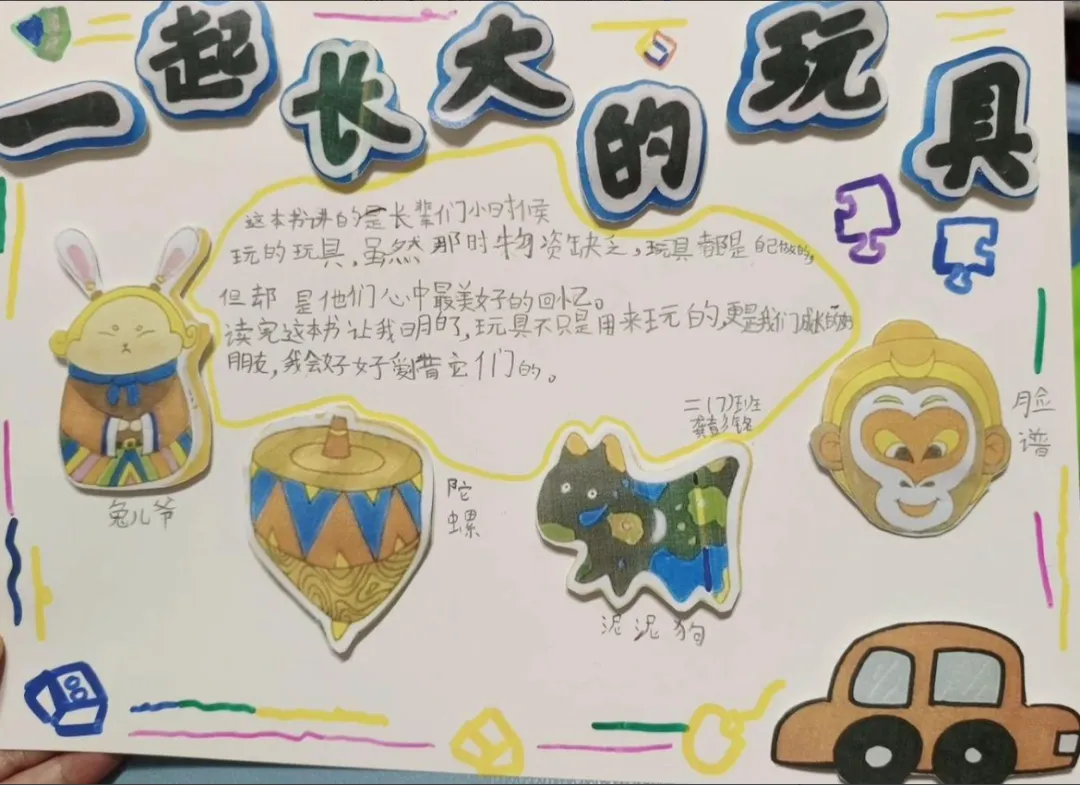 一起长大的玩具
这本书讲的是长辈们小时候
玩的玩具，虽然那时物资缺乏，玩具都是自己做的，
但却是他们心中最美好的回忆。
读完这本书让我明白了，玩具不只是用来玩的，更是我们成长的好
朋友，我会好好爱惜它们的。
二(7)班
兔儿爷
陀
螺
泥泥狗
脸
谱